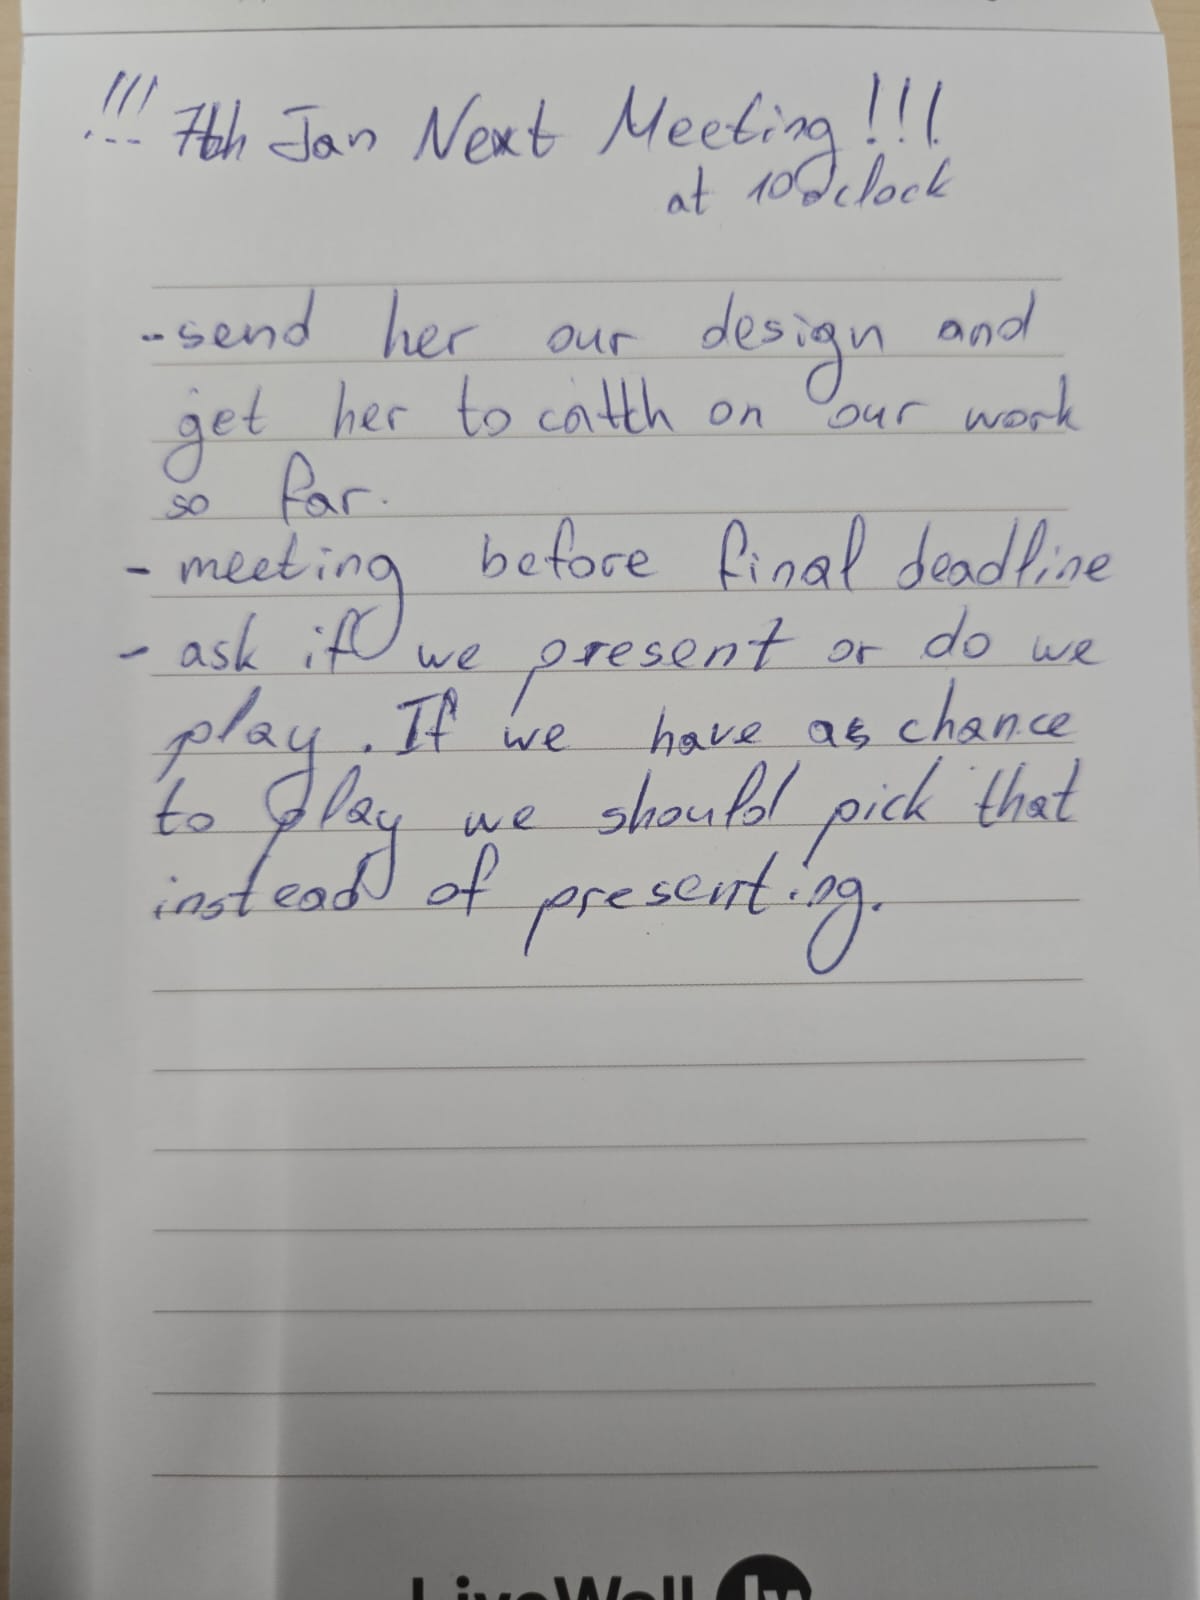 !!! 7th Jan Next Meeting!!!
at 10 o'clock
- send her our design and
get her to catch on our work
so far.
- meeting before final deadline
- ask if we present or do we
play. If we have as chance
to play we should pick that
instead of presenting.
LiveWall lw